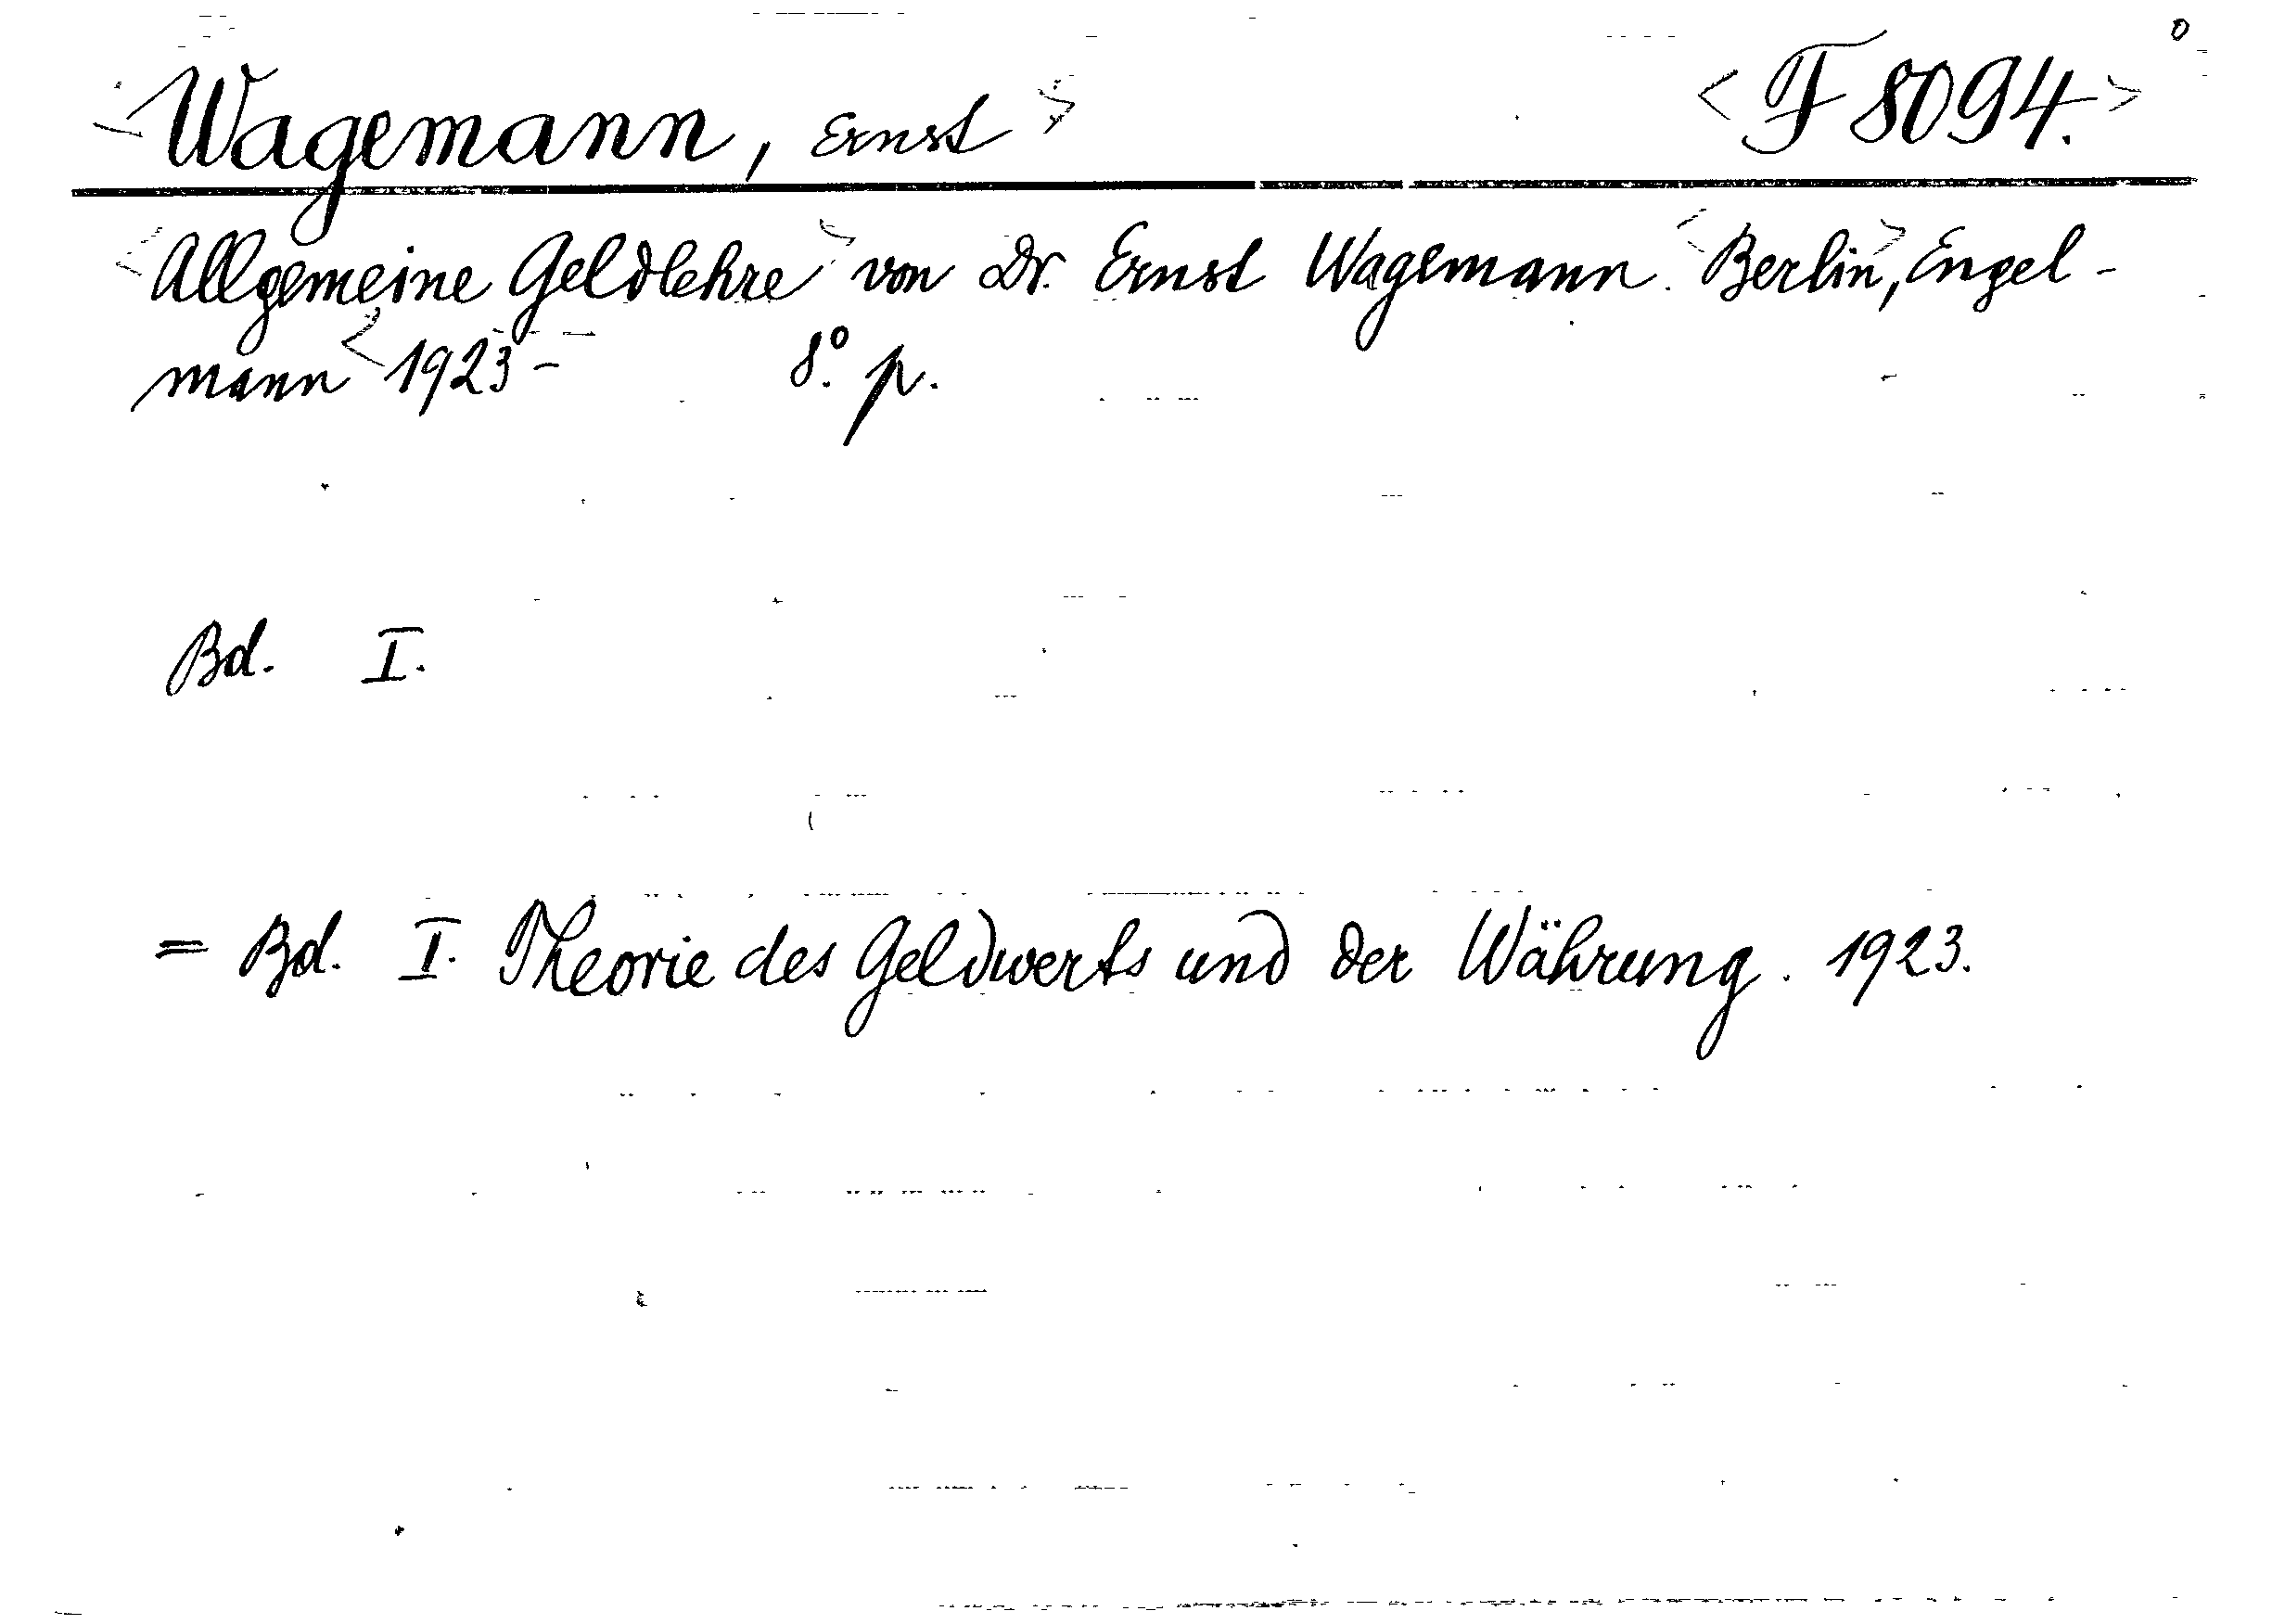 <Wagemann, Ernst> <F 8094.>
<Allgemeine Geldlehre> von Dr. Ernst Wagemann. <Berlin>, Engel-
mann <1923- 8º. p.
Bd. I.
= Bd. I. Theorie des Geldwerts und der Währung. 1923.